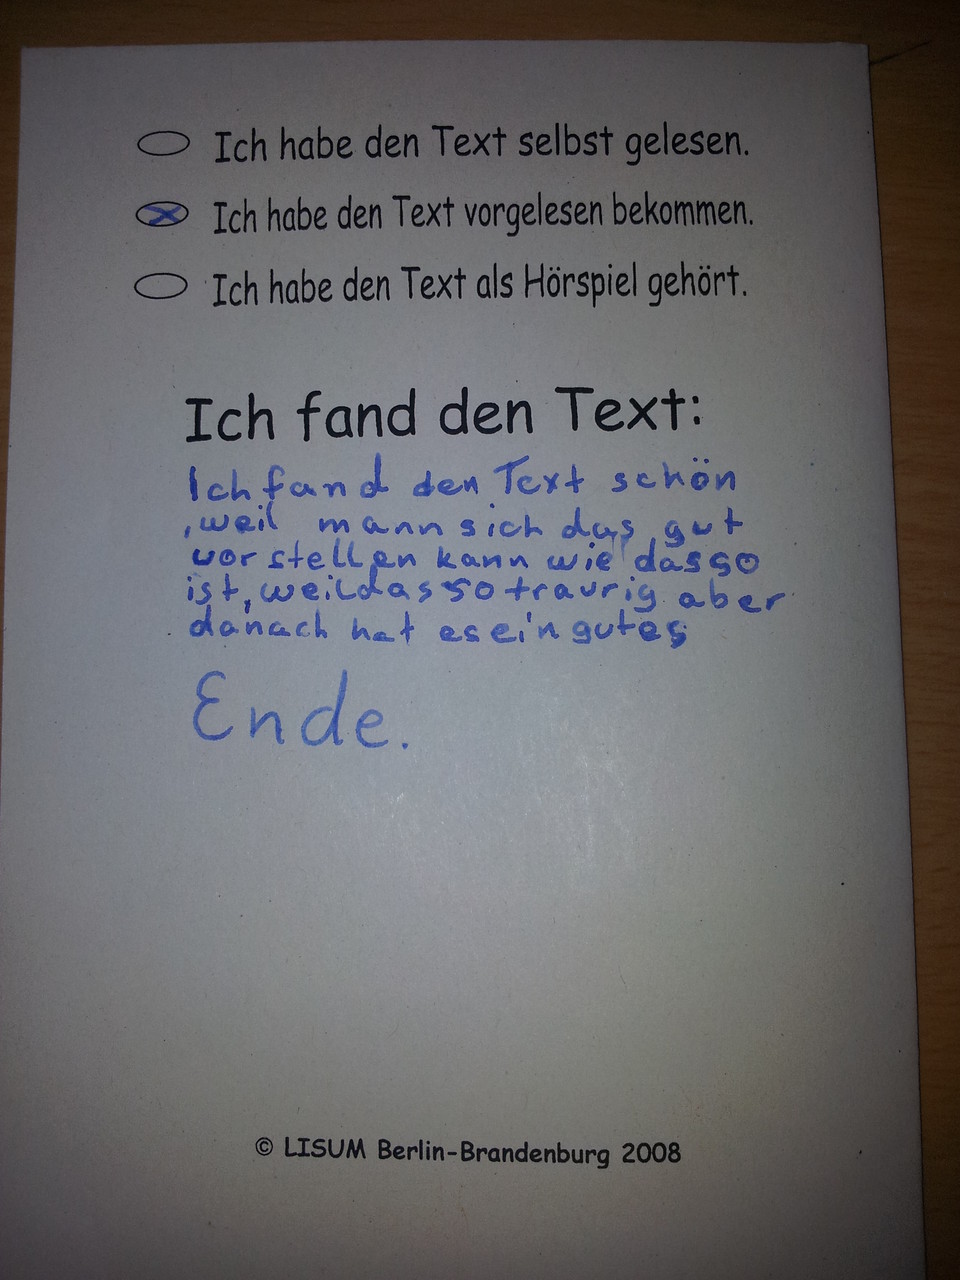 Ich habe den Text selbst gelesen.
Ich habe den Text vorgelesen bekommen.
Ich habe den Text als Hörspiel gehört.
Ich fand den Text:
Ich fand den Text schön
, weil mann sich das gut
vorstellen kann wie das so
ist, weil das so traurig aber
danach hat es ein gutes
Ende.
© LISUM Berlin-Brandenburg 2008